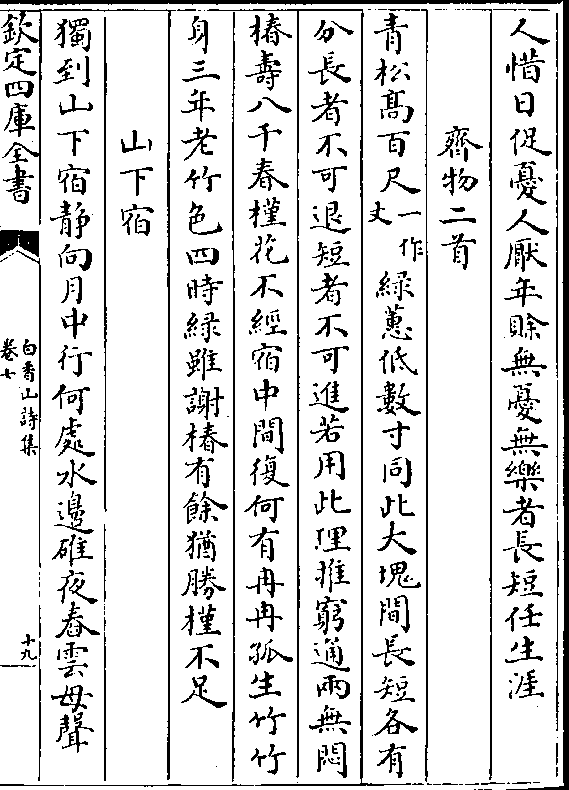 人惜日促憂人厭年賒無憂無樂者長短任生涯
齊物二首
青松髙百尺一作丈緑蕙低數寸同此大塊間長短各有
分長者不可退短者不可進若用此理推窮通兩無悶
椿壽八千春槿花不經宿中間復何有冉冉孤生竹竹
身三年老竹色四時緑雖謝椿有餘猶勝槿不足
山下宿
獨到山下宿静向月中行何處水邊碓夜舂雲母聲
欽定四庫全書
白香山詩集
卷七
十九